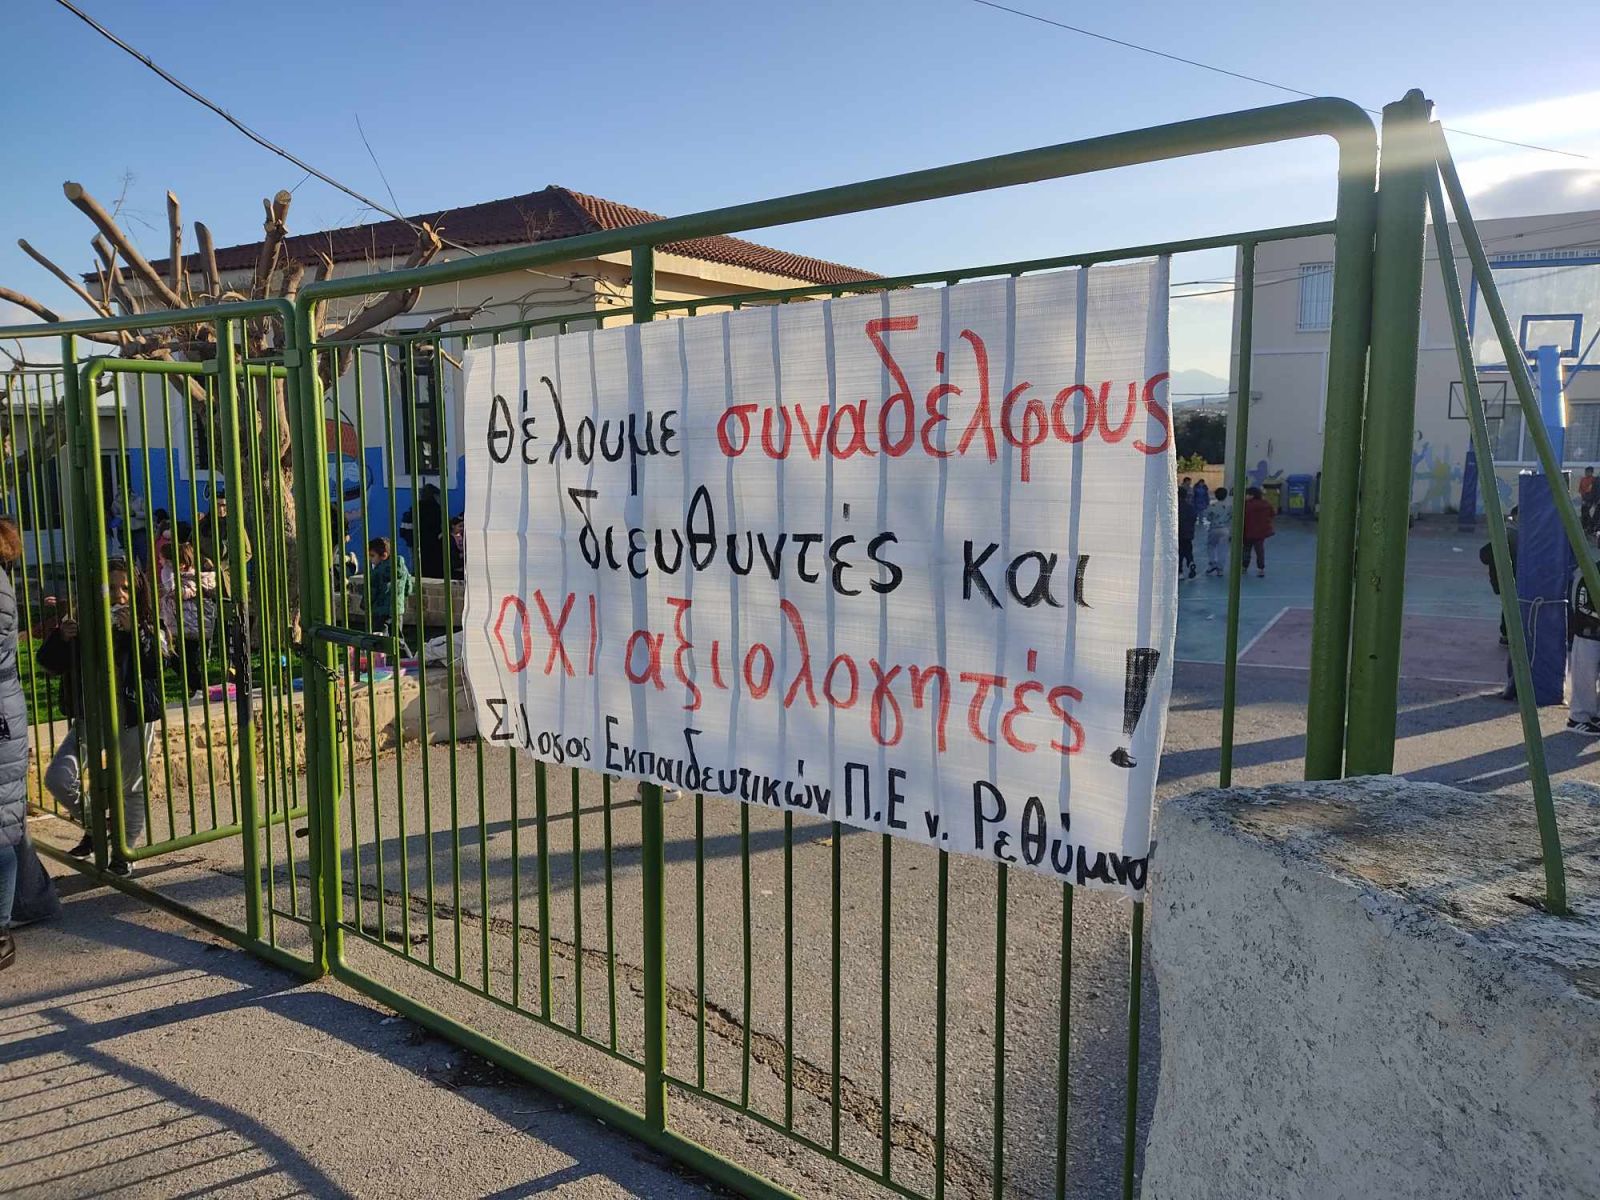 θέλουμε συναδέλφους
διευθυντές και
ΟΧΙ αξιολογητές!
Σύλλογος Εκπαιδευτικών Π.Ε ν. Ρεθύμνο